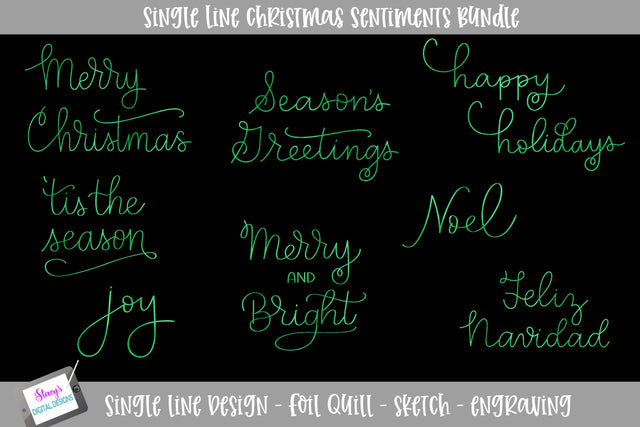 Single Line Christmas Sentiments Bundle
Merry
Christmas
Season's
Greetings
happy
holidays
'tis the
season
Merry
AND
Bright
Noel
joy
Feliz
Navidad
Stacy's
DIGITAL DESIGNS
Single Line Design - Foil Quill - Sketch - Engraving